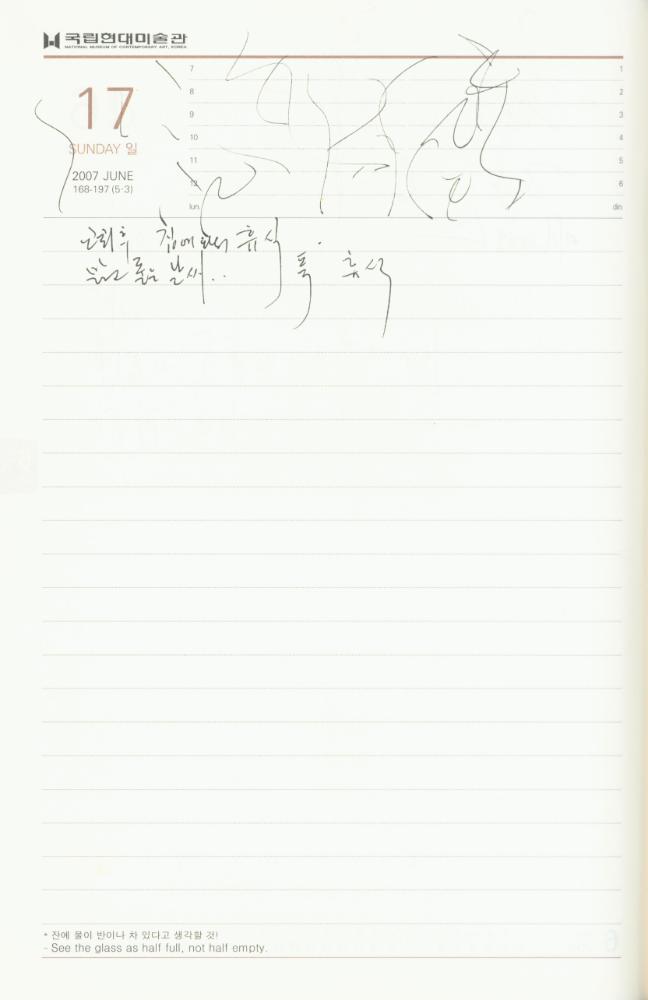 국립현대미술관
NATIONAL MUSEUM OF CONTEMPORARY ART, KOREA
17
SUNDAY 일
2007 JUNE
168-197 (5·3)
7
8
9
10
11
12
lun
1
2
3
4
5
6
din
후 집에 와서 휴식.
날씨.. 푹 휴식
* 잔에 물이 반이나 차 있다고 생각할 것!
- See the glass as half full, not half empty.